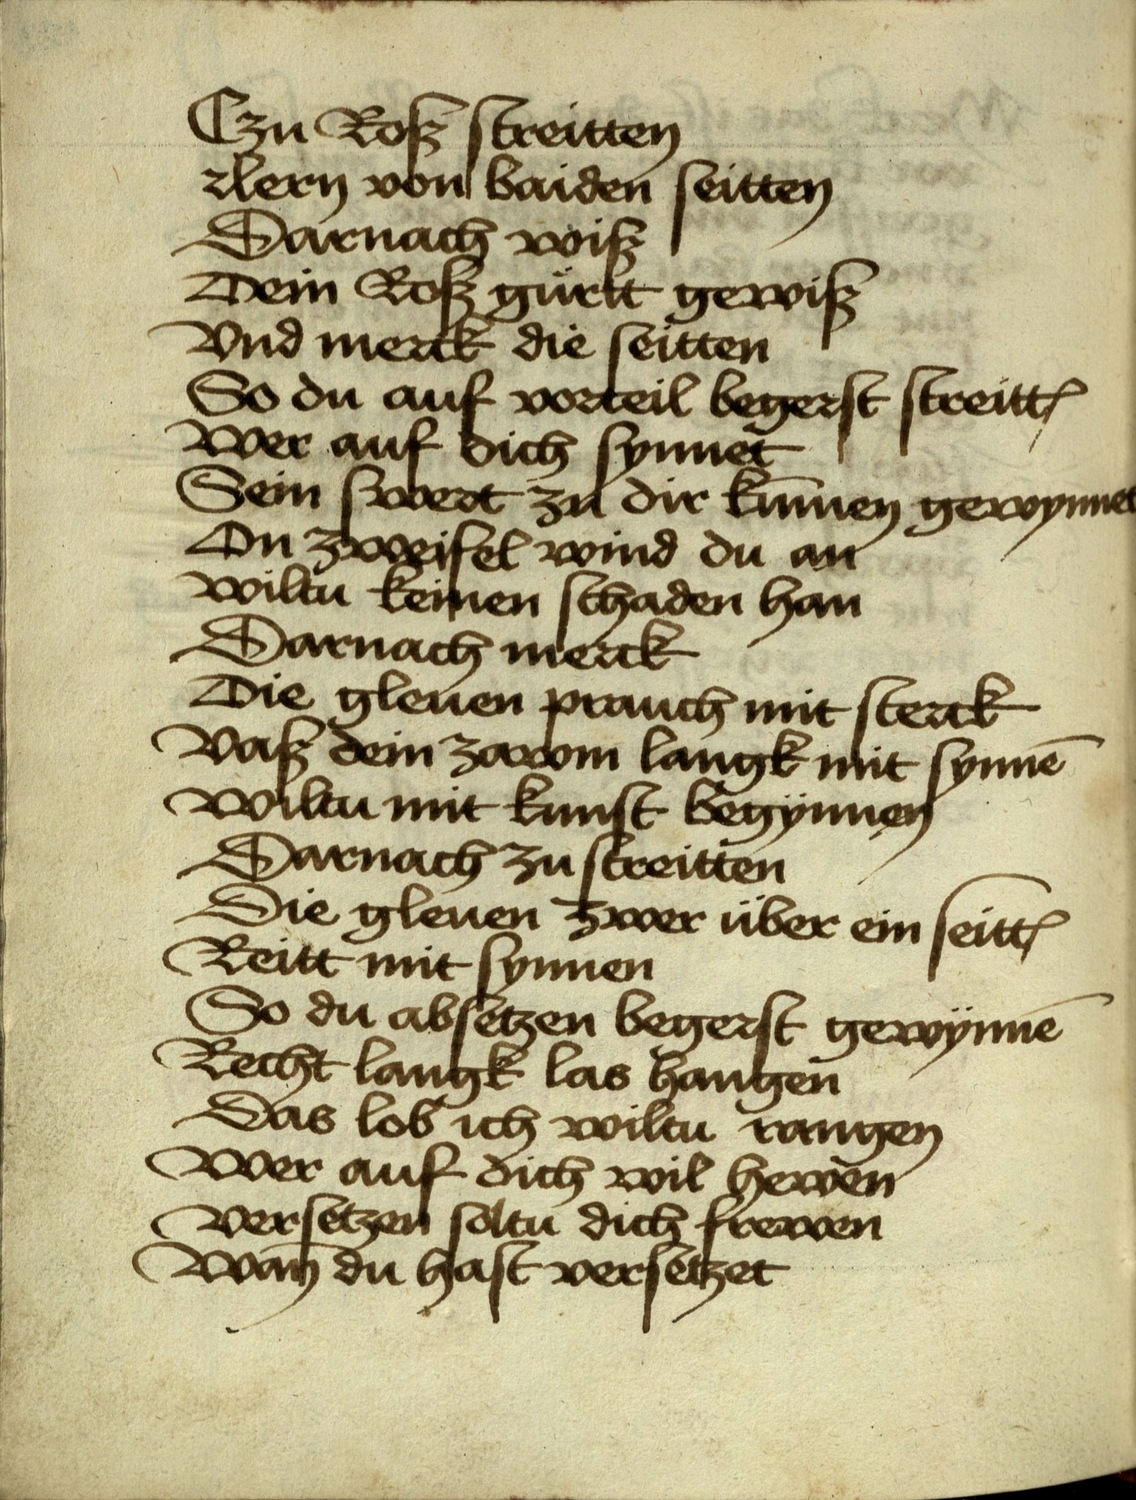 Czu Roß streitten
lern von baiden seitten
Darnach wiß
Dein Roß gürtt gewiß
Vnd merck die seitten
So du auf vorteil begerst streittn̄
Wer auf dich synnet
Sein swert zu dir kūmen gewynnet
On zweifel wind du an
wiltu keinen schaden han
Darnach merck
Die gleuen prauch mit sterck
Vaß dein zawm langk mit synnē
Wiltu mit kunst begÿnnen
Darnach zu streitten
Die gleuen zwer über ein seittn̄
Reitt mit synnen
So du absetzen begerst gewÿnnē
Recht langk las hangen
Das lob ich wiltu rangen
Wer auf dich wil hewen
versetzen soltu dich frewen
Wan̄ du hast versetzet